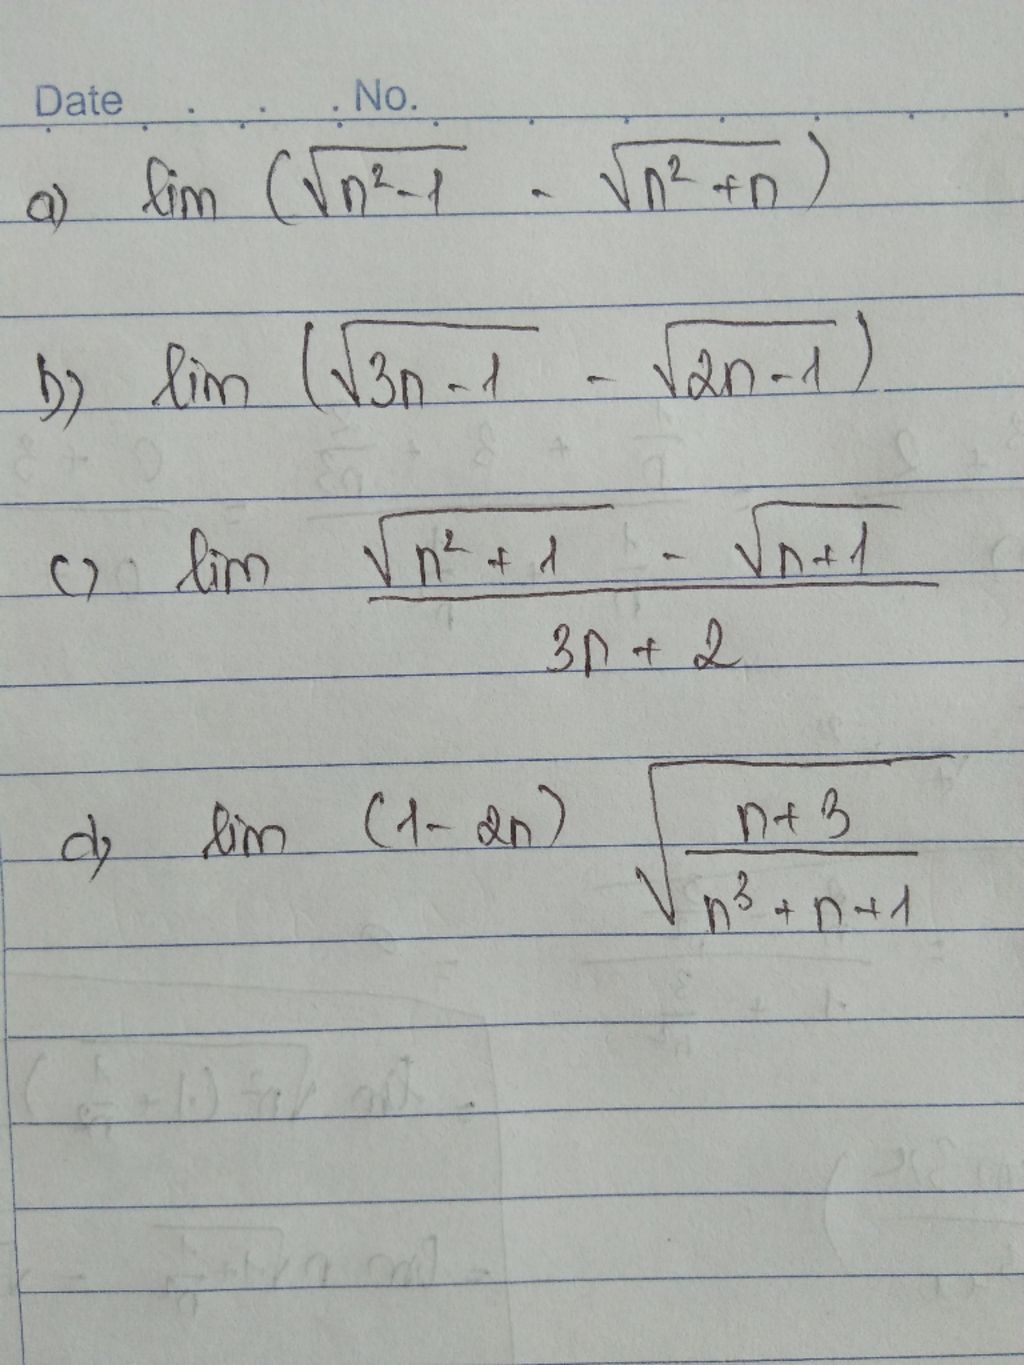 Date . . . No.
a) lim (√(n² - 1) - √(n² + n))
b) lim (√(3n - 1) - √(2n - 1))
c) lim (√(n² + 1) - √(n + 1)) / (3n + 2)
d) lim (1 - 2n) √((n + 3) / (n³ + n + 1))